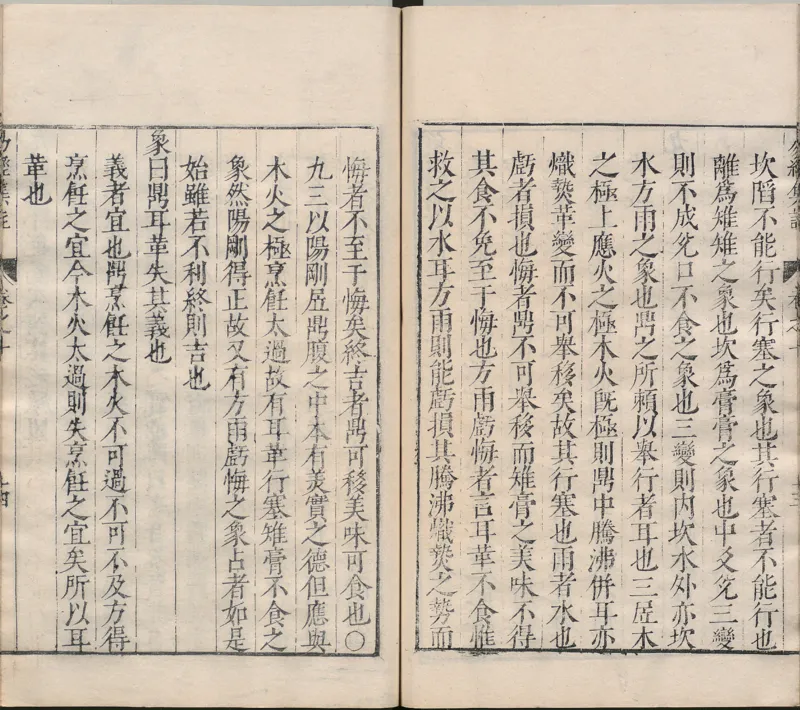 坎陷不能行矣行塞之象也其行塞者不能行也
離爲雉雉之象也坎爲膏膏之象也中爻兊三變
則不成兊口不食之象也三變則內坎水外亦坎
水方雨之象也鼎之所賴以舉行者耳也三居木
之極上應火之極木火旣極則鼎中騰沸併耳亦
熾𤍠革變而不可舉移矣故其行塞也雨者水也
虧者損也悔者鼎不可舉移而雉膏之美味不得
其食不免至于悔也方雨虧悔者言耳革不食惟
救之以水耳方雨則能虧損其騰沸熾𤍠之勢而
悔者不至于悔矣終吉者鼎可移美味可食也〇
九三以陽剛居鼎腹之中本有美實之德但應與
木火之極烹飪太過故有耳革行塞雉膏不食之
象然陽剛得正故又有方雨虧悔之象占者如是
始雖若不利終則吉也
象曰鼎耳革失其義也
義者宜也鼎烹飪之木火不可過不可不及方得
烹飪之宜今木火太過則失烹飪之宜矣所以耳
革也